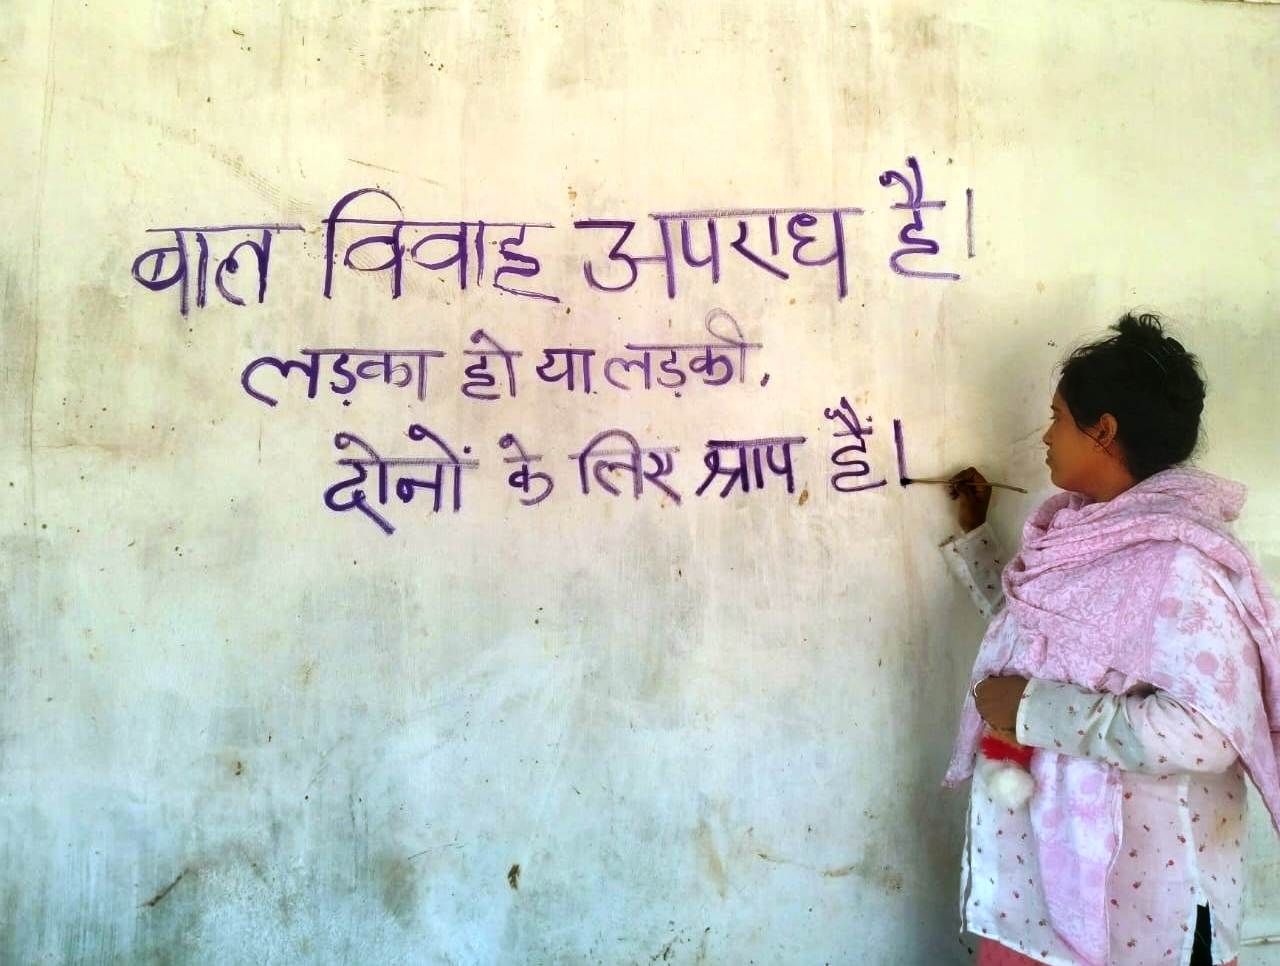 बाल विवाह अपराध है।
लड़का हो या लड़की,
दोनों के लिए श्राप हैं।